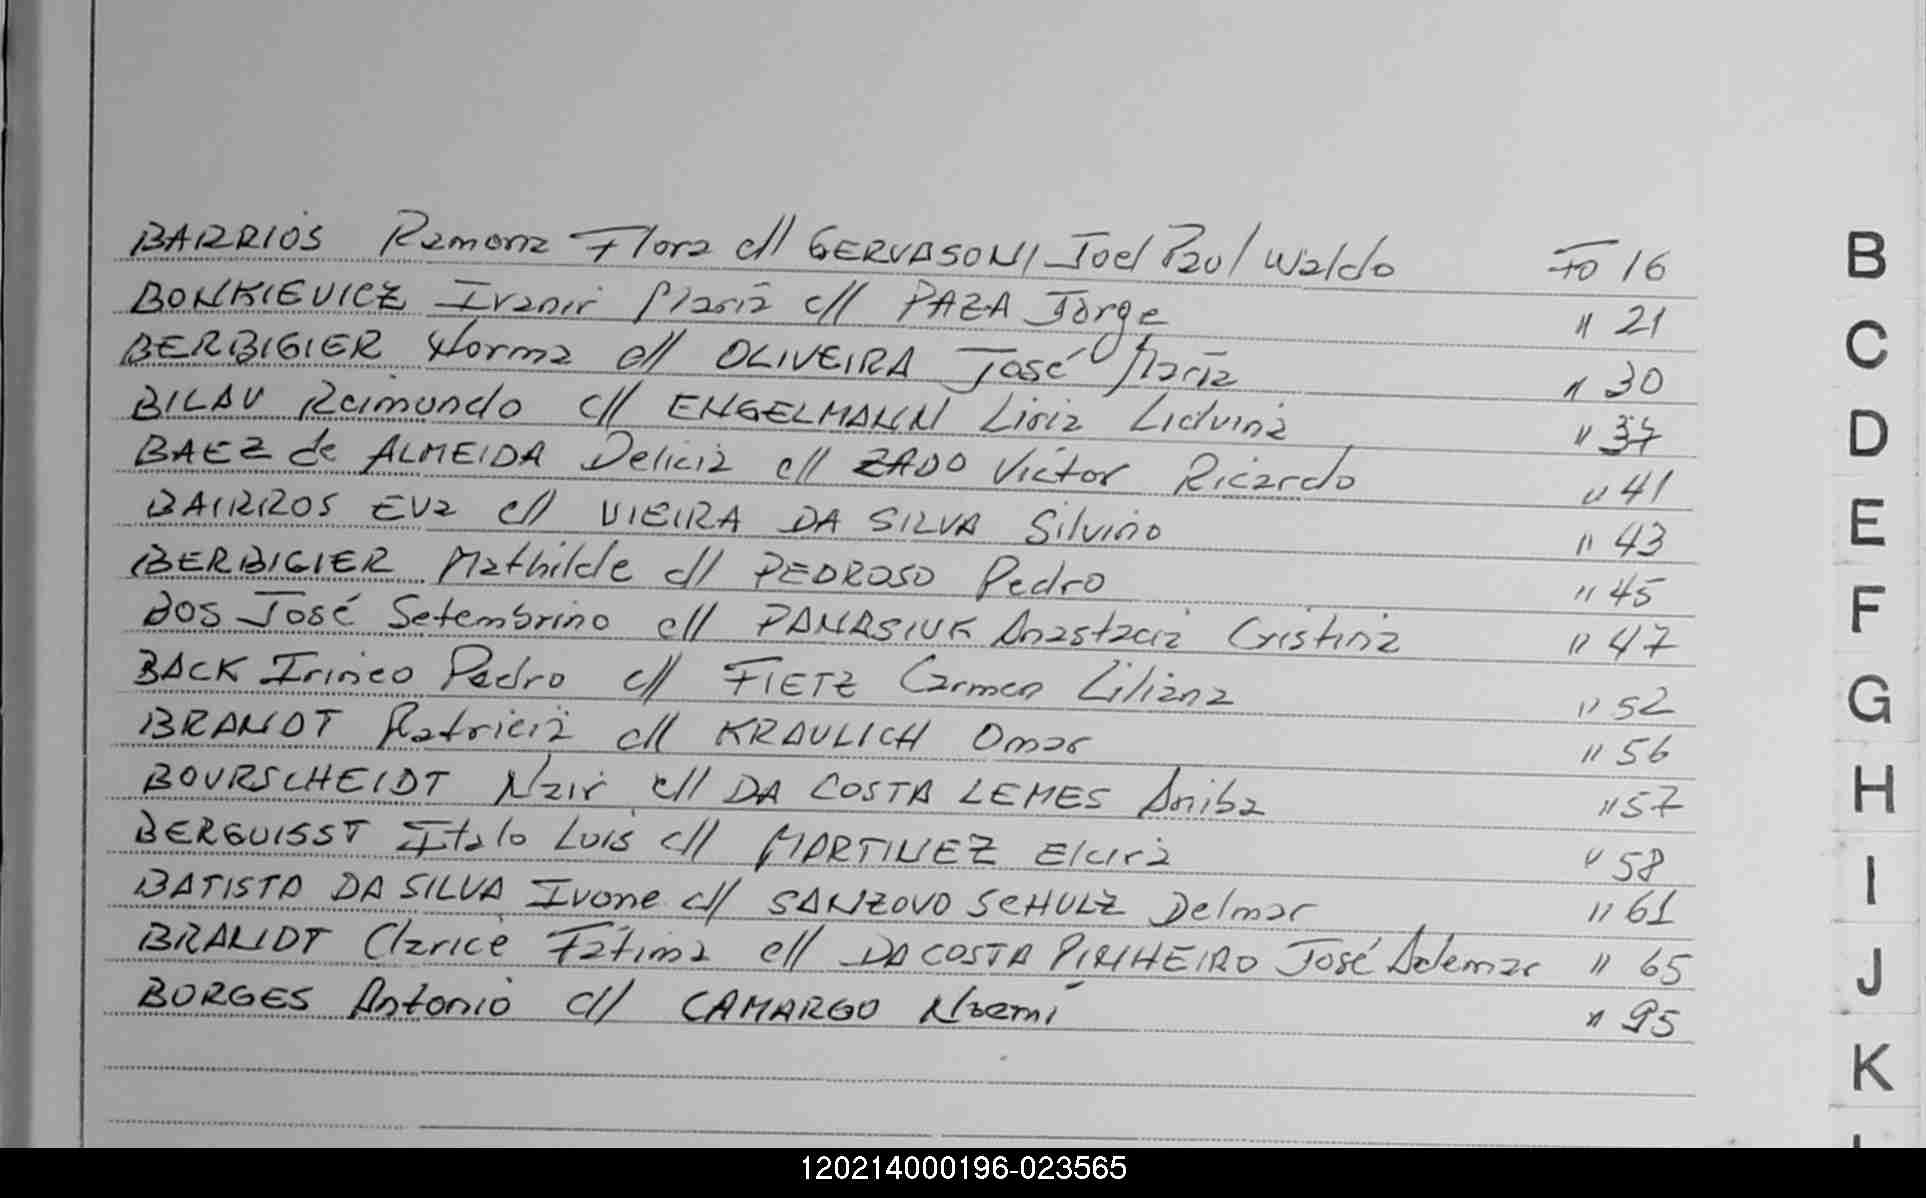 BARRIOS Ramona Flora c// GERVASONI Joel Paul Waldo Fo 16
BONKIEVICZ Ivanir Maria c// PAZA Jorge " 21
BERBIGIER Norma c// OLIVEIRA José Maria " 30
BILAU Raimundo c// ENGELMANN Liria Liduina " 37
BAEZ de ALMEIDA Delicia c// ZADO Victor Ricardo " 41
BAIRROS EVA c// VIEIRA DA SILVA Silvino " 43
BERBIGIER Mathilde c// PEDROSO Pedro " 45
BOS José Setembrino c// PANASIUK Anastacia Cristina " 47
BACK Irineo Pedro c// FIETZ Carmen Liliana " 52
BRANDT Patricia c// KRAULICH Omar " 56
BOURSCHEIDT Nair c// DA COSTA LEMES Aniba " 57
BERGUISST Italo Luis c// MARTINEZ Elcira " 58
BATISTA DA SILVA Ivone c// SANZOVO SCHULZ Delmar " 61
BRANDT Clarice Fatima c// DA COSTA PINHEIRO José Ademar " 65
BORGES Antonio c// CAMARGO Noemi " 95
B
C
D
E
F
G
H
I
J
K
120214000196-023565